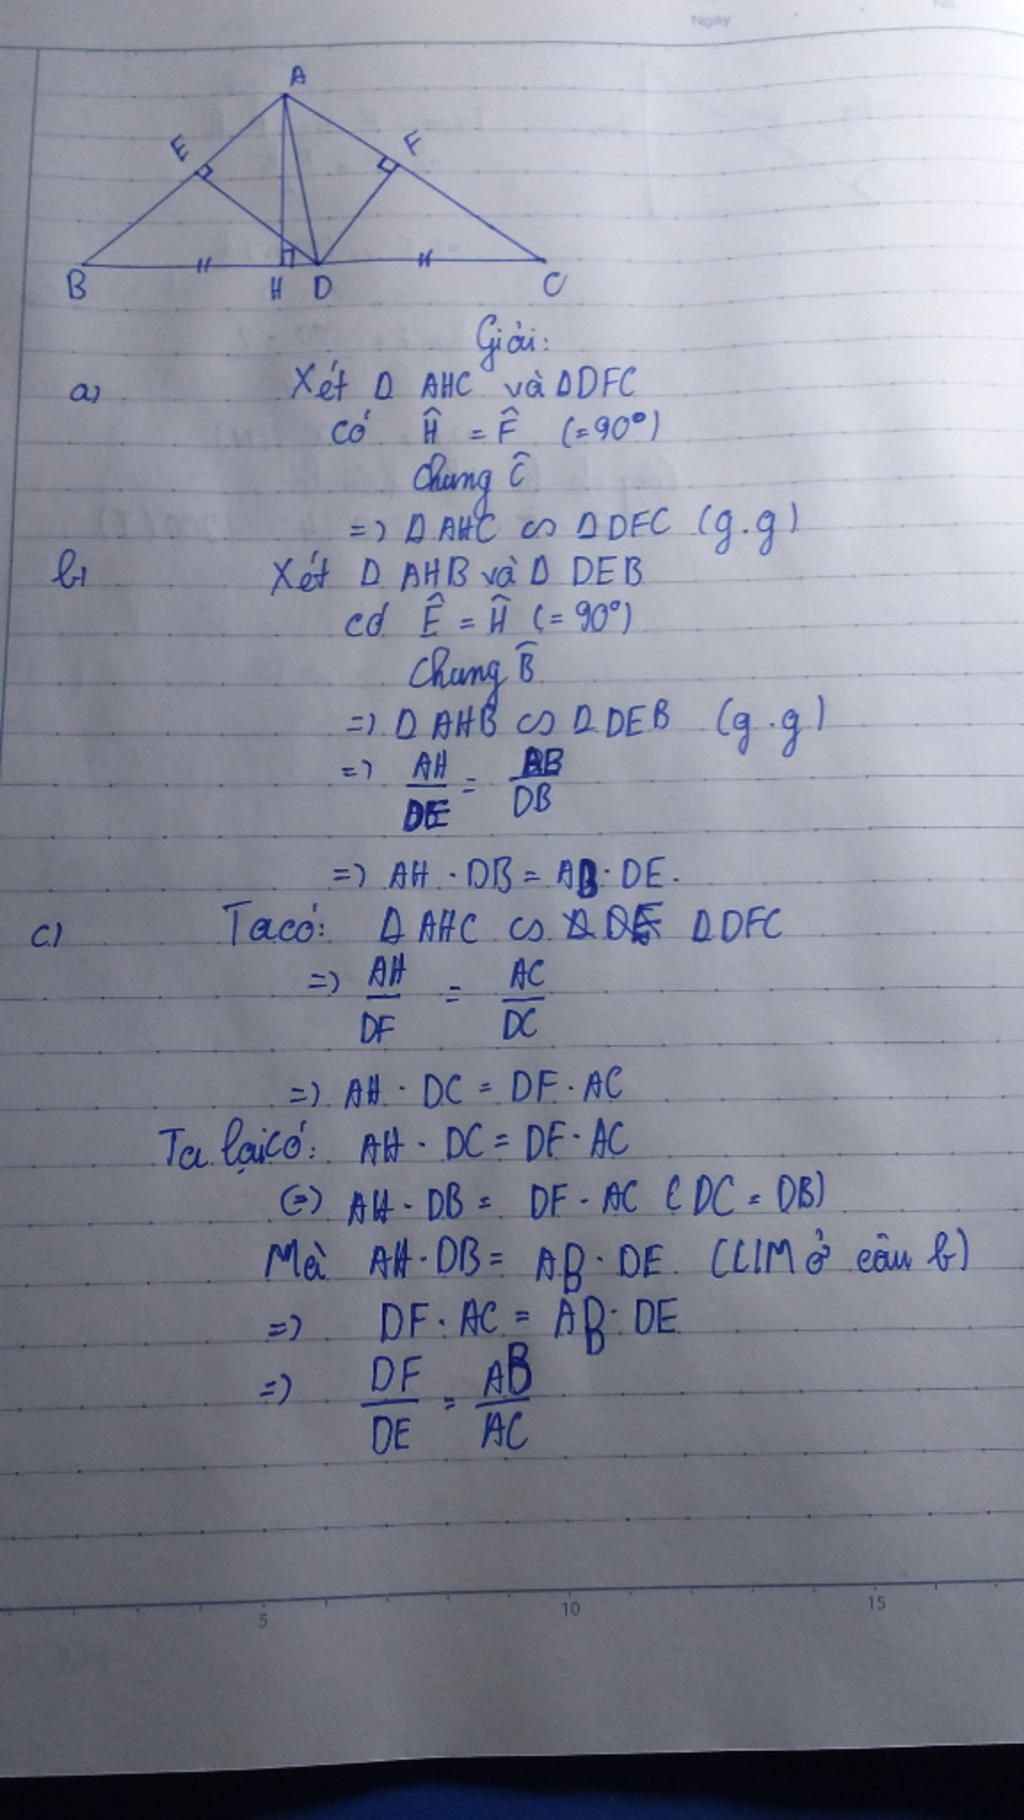 Ngày
No.
A
E
F
B
H D
C
Giải:
a) Xét Δ AHC và ΔDFC
có Ĥ = F̂ (=90°)
Chung Ĉ
=> Δ AHC ∽ Δ DFC (g.g)
b) Xét Δ AHB và Δ DEB
có Ê = Ĥ (=90°)
Chung B̂
=> Δ AHB ∽ Δ DEB (g.g)
=> AH/DE = AB/DB
=> AH . DB = AB . DE.
c) Ta có: Δ AHC ∽ Δ DFC
=> AH/DF = AC/DC
=> AH . DC = DF . AC
Ta lại có: AH . DC = DF . AC
(=) AH . DB = DF . AC (DC = DB)
Mà AH . DB = AB . DE (CM ở câu b)
=> DF . AC = AB . DE
=> DF/DE = AB/AC
5 10 15